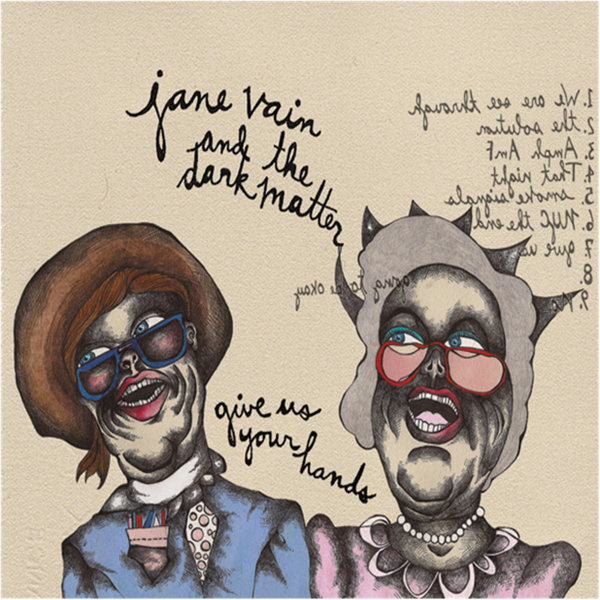 jane vain
and the
dark matter
1. We are see through
2. the solution
3. 
4. That night
5. smoke signals
6. the end
7. give us
8.
9.
going to be okay
give us
your
hands